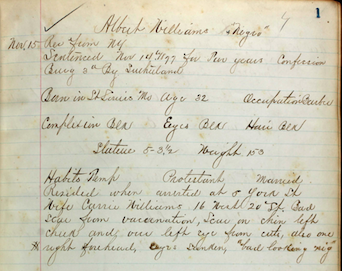 ✓ Albert Williams "Niger" 4 1
Nov 15 Rec from NY
Sentenced Nov 10/97 for Five years Confession
Burg 3rd By Sutherland
Born in St Louis Mo Age 32 Occupation
Complexion Blk Eyes Blk Hair Blk
Stature 5-3½ Weight 153
Habits Temp Protestant Married
Resided when arrested at 8 York St
Wife Carrie Williams 16 West 20" St. Bad
Scar from vaccination, Scar on chin left
cheek and over left eye from cuts, also one
right forehead, eyes sunken, bad looking nig